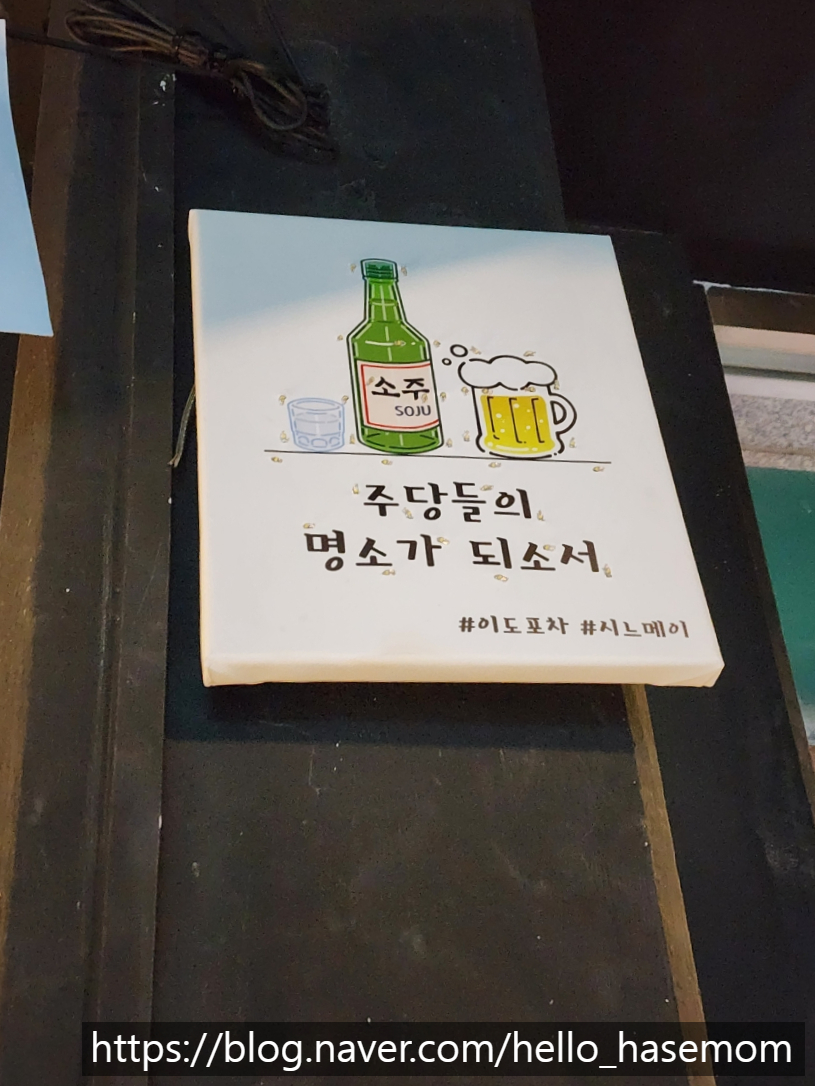 소주
SOJU
주당들의
명소가 되소서
#이도포차 #시느메이
https://blog.naver.com/hello_hasemom